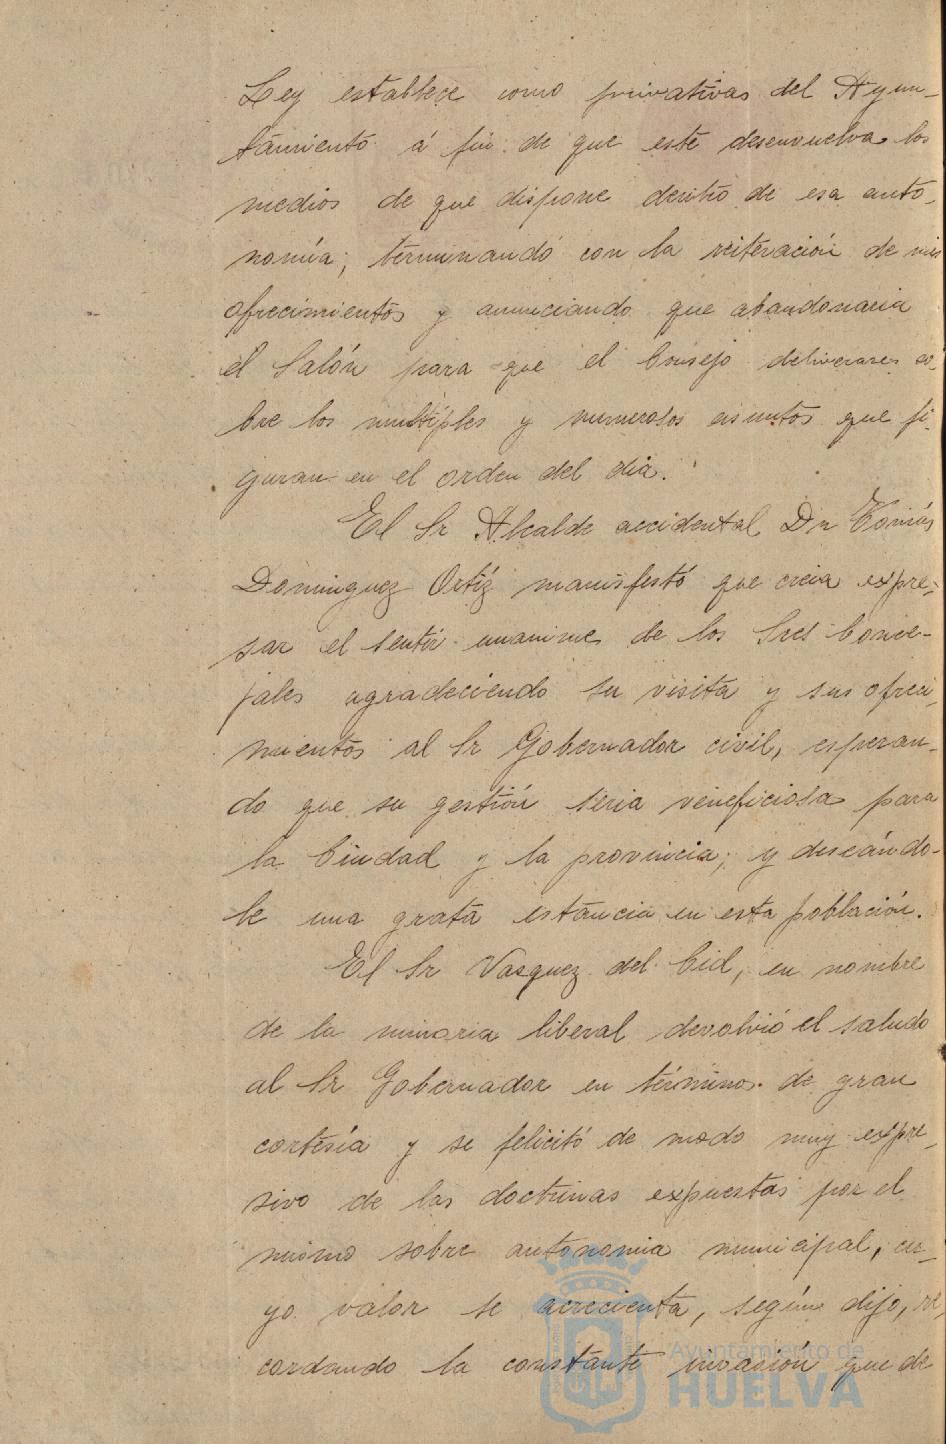 Ley establece como privativas del Ayun-
tamiento á fin de que este desenvuelva los
medios de que dispone dentro de esa auto-
nomía; terminando con la reiteración de mis
ofrecimientos y anunciando que abandonaria
el Salón para que el Consejo deliverares so-
bre los multiples y numerosos asuntos que fi-
guran en el orden del dia.
El Sr Alcalde accidental Dn Tomás
Dominguez Ortíz manifestó que creia expre-
sar el sentir unanime de los Sres Conce-
jales agradeciendo su visita y sus ofreci-
mientos al Sr Gobernador civil, esperan-
do que su gestión seria veneficiosa para
la Ciudad y la provincia; y deseándo-
le una grata estancia en esta población.
El Sr Vasquez del Cid, en nombre
de la minoria liberal devolvió el saludo
al Sr Gobernador en términos de gran
cortesía y se felicitó de modo muy expre-
sivo de las doctrinas expuestas por el
mismo sobre autonomia municipal, cu-
yo valor se acrecienta, según dijo, re-
cordando la constante invasión que de
Ayuntamiento de
HUELVA